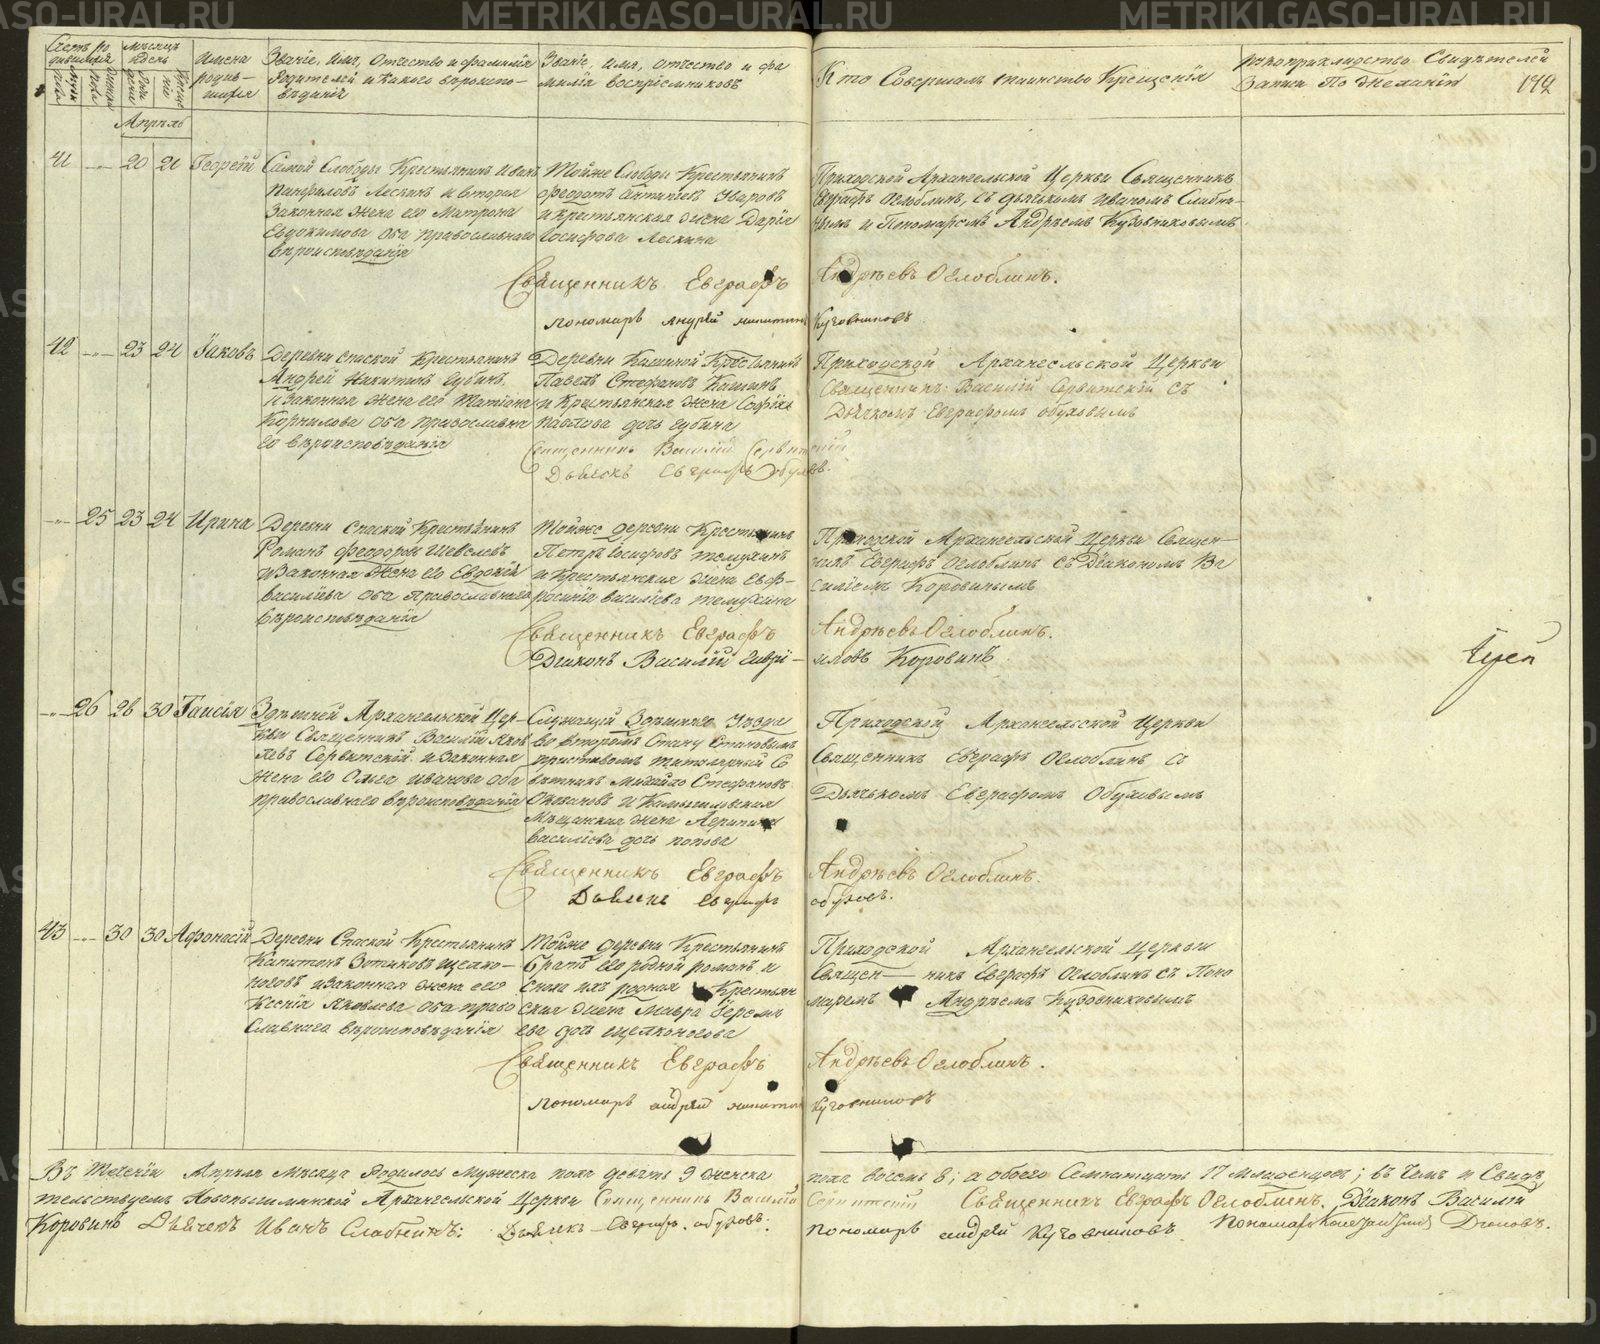 Счетъ родившихся
мѣсяцъ и день
Имена родившихся
Званіе, Имя, Отчество и фамилія Родителей и какого вѣроиспо-вѣданія
Званіе, имя, отчество и фамилія воспріемниковъ
Кто Совершалъ таинство Крещенія
Рукоприкладство Свидѣтелей Записи По Желанію
Апрѣль
41 20 21 Георгій
Самой Слободы Крестьянинъ Иванъ
Панфиловъ Лескинъ и вторая
Законная жена его Матрона
Евдокимова Оба православнаго
вѣроисповѣданія
Тойже Слободы Крестьянинъ
Феодотъ Антипьевъ Уваровъ
и крестьянская жена Дарія
Іосифова Лескина
Приходской Архангельской Церкви Священникъ
Евграфъ Оглоблинъ, съ дьячкомъ Иваномъ Слабни-
нымъ и Пономаремъ Андреемъ Кузовниковымъ
Священникъ Евграфъ Андреевъ Оглоблинъ.
пономарь андрей никитинъ Кузовниковъ
42 23 24 Іаковъ
Деревни Спаской Крестьянинъ
Андрей Никитинъ Губинъ
и Законная жена его Татіана
Корнилова Оба православна
го вѣроисповѣданія
Деревни Кашиной Крестьянинъ
Павелъ Стефановъ Кашинъ
и Крестьянская жена Софія
Павлова дочь Губина
Приходской Архангельской Церкви
Священникъ Василій Сервитскій съ
Дьячкомъ Евграфомъ Обуховымъ
Священникъ Василій Сервитскій
Дьячекъ Евграфъ Обуховъ.
25 23 24 Ирина
Деревни Спаской Крестьянинъ
Романъ Феодоровъ Шевелевъ
и Законная Жена его Евдокія
Василіева Оба Православнаго
вѣроисповѣданія
Тойже деревни Крестьянинъ
Петръ Іосифовъ Телухинъ
и Крестьянская жена Евф-
росинія Василіева Телухина
Приходской Архангельской Церкви Священ-
никъ Евграфъ Оглоблинъ съ Діакономъ Ва
силіемъ Коровинымъ
Священникъ Евграфъ Андреевъ Оглоблинъ.
Діаконъ Василій Гаврі-иловъ Коровинъ
26 28 30 Таисія
Здѣшней Архангельской Цер-
кви Священникъ Василій Яков
левъ Сервитскій и Законная
Жена его Ольга Иванова Оба
православнаго вѣроисповѣданія
Служащій Здѣшняго Уѣзда
во второмъ Стану Становымъ
приставомъ титулярный Со
вѣтникъ Михайло Стефановъ
и Камышловская
Мѣщанская жена Агрипина
Василіева дочь Попова
Приходской Архангельской Церкви
Священникъ Евграфъ Оглоблинъ съ
Дьячькомъ Евграфомъ Обуховымъ
Священникъ Евграфъ Андреевъ Оглоблинъ.
Дьячекъ Евграфъ обуховъ.
43 30 30 Афонасій
Деревни Спаской Крестьянинъ
Капитонъ Зотиковъ Щелко-
ноговъ и Законная жена его
Ксенія Яковлева Оба право
славнаго вѣроисповѣданія
Тойже деревни Крестьянинъ
Братъ его родной романъ и
сноха ихъ родная Крестьян
ская жена Мавра Іерем
ѣва дочь Щелконогова
Приходской Архангельской Церкви
Священ-никъ Евграфъ Оглоблинъ съ Поно
маремъ Андреемъ Кузовниковымъ
Священникъ Евграфъ Андреевъ Оглоблинъ.
пономарь андрей никитинъ Кузовниковъ
Въ теченіи Апрѣля Мѣсяца Родилось Мужеска пола девять 9 женска пола восемь 8; а обоего Семнатцать 17 Младенцовъ; въ чемъ и Свидѣ
тельствуемъ Новопышминской Архангельской Церкви Священникъ Василій Сервитскій Священникъ Евграфъ Оглоблинъ. Діаконъ Василій
Коровинъ Дьячекъ Иванъ Слабнинъ: Дьячекъ Евграфъ обуховъ. пономарь андрей Кузовниковъ Пономарь
METRIKI.GASO-URAL.RU